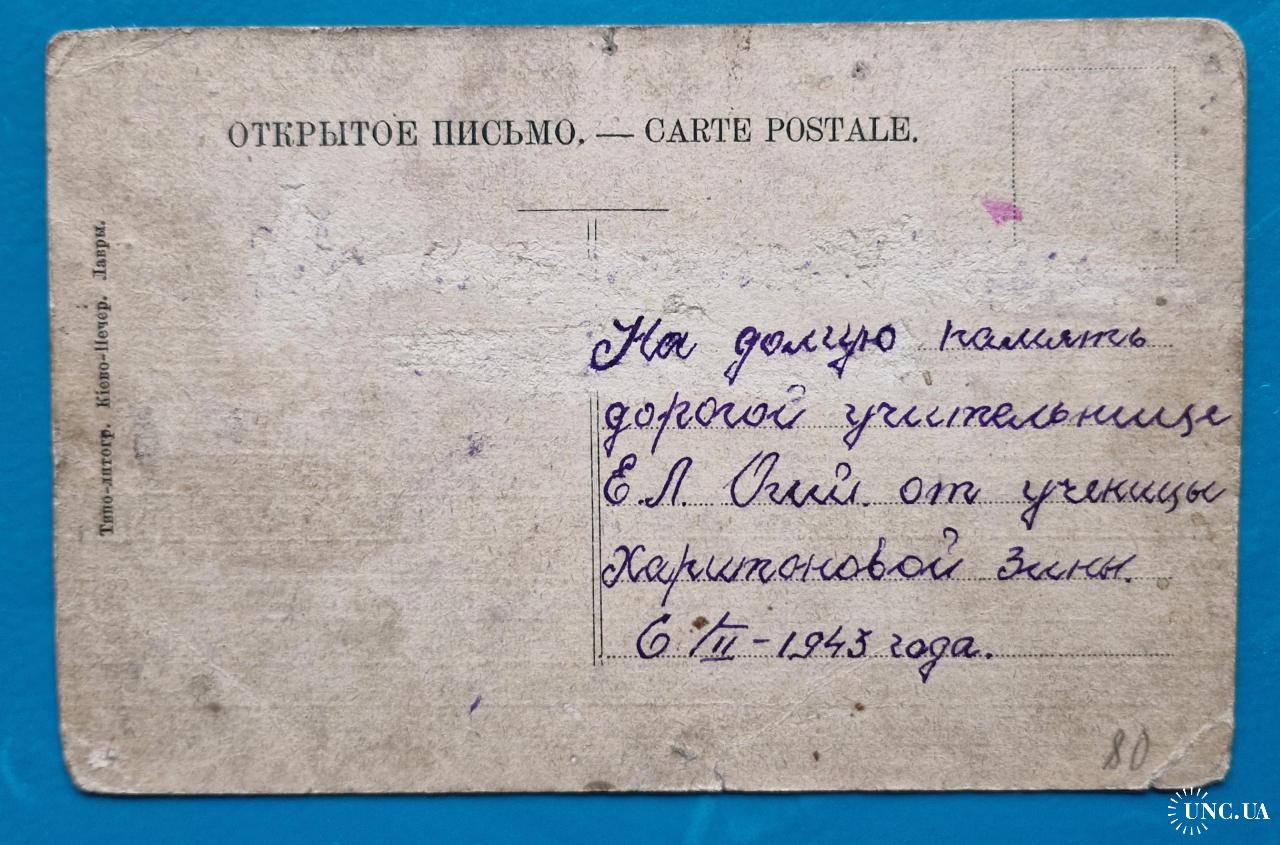 ОТКРЫТОЕ ПИСЬМО. — CARTE POSTALE.
Типо-литогр. Кіево-Печер. Лавры.
На долгую память
дорогой учительнице
Е.Л. Огий от ученицы
Харитоновой Зины.
6/II - 1943 года.
80
UNC.UA